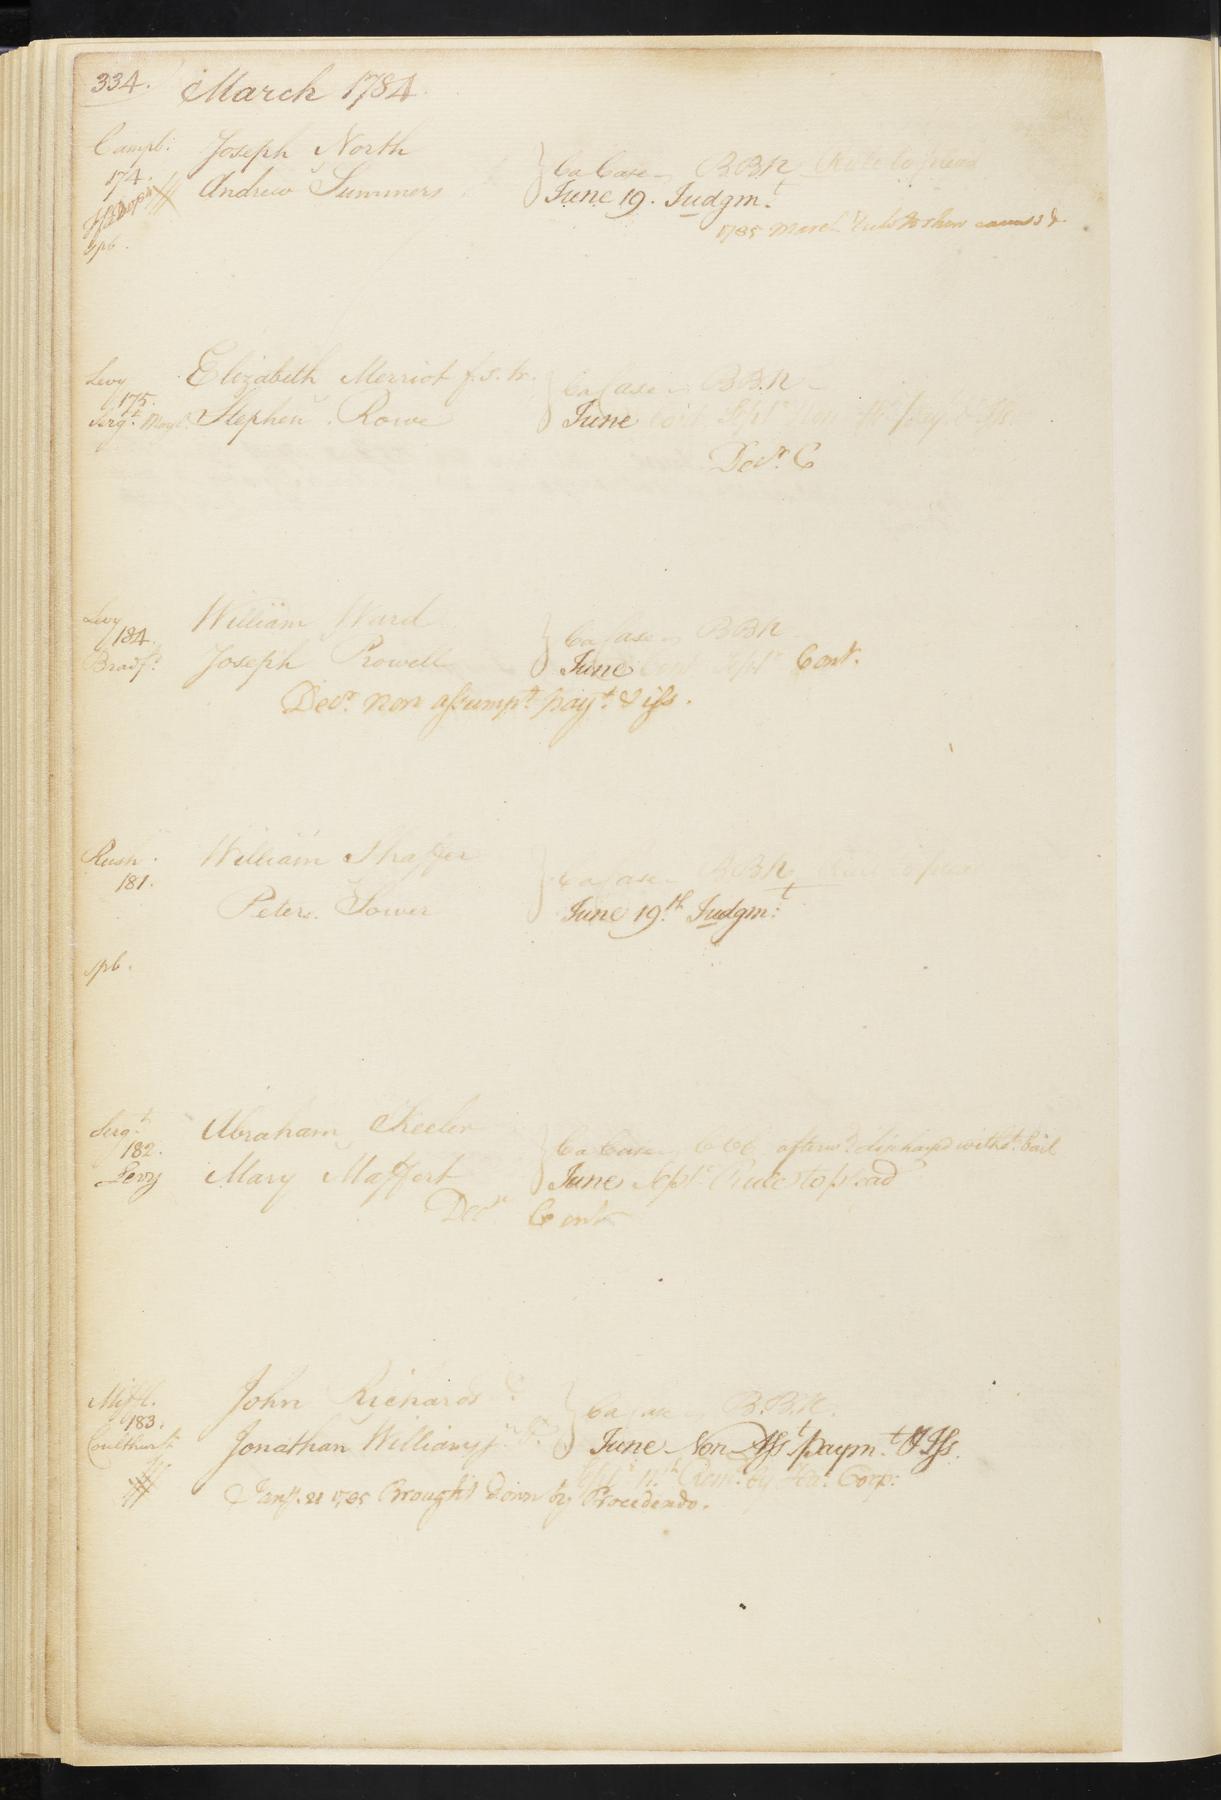 334. March 1784.
Campb: Joseph North
174. Andrew Summers
Ca Case BBR Rule to plead
June 19. Judgm:t
spb.
1785 March Rule to shew cause &
Levy Elizabeth Merriot f.s.tr.
175.
Serg:t Stephen Rowe
Ca Case BBR
June Cont. Sept.r
Dec.r C
Levy William Ward
184.
Bradf:d Joseph Prowell
Ca Case BBR
June Cont Sept.r Cont.
Dec.r non assumpt paym.t & iss.
Rush. William Shaffer
181.
Peter Sower
Ca Case BBR Rule to plead
June 19.th Judgm:t
spb.
Serg:t Abraham Keeler
182.
Levy Mary Maffert
Ca Case afterw.d discharged witht. bail
June Sept.r Rule to plead
Dec.r Cont
Miffl. John Richards
183.
Coulthurst Jonathan Williams jr.
Ca Case B.B.R.
June Non Ass.t paym.t & Iss.
Sept.r Rem.d by Ha. Corp:
Jany. 21 1785 Brought down by Procedendo.